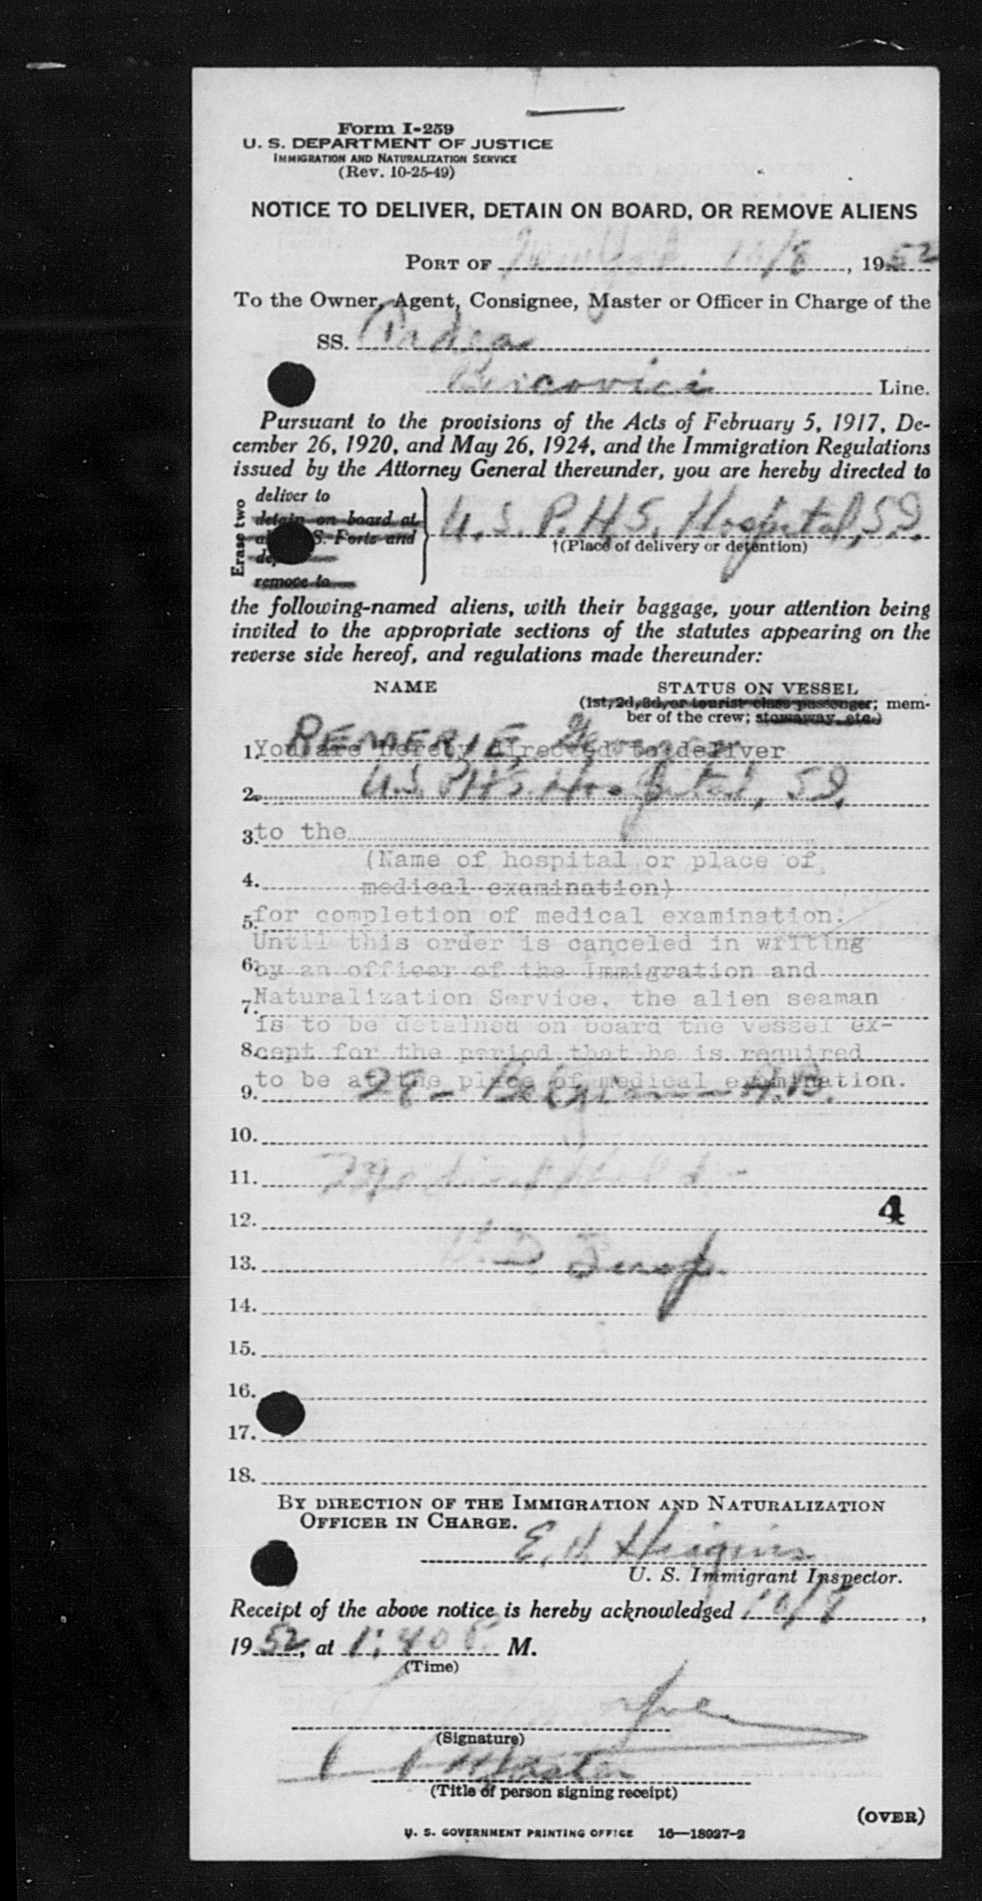 Form I-259
U. S. DEPARTMENT OF JUSTICE
IMMIGRATION AND NATURALIZATION SERVICE
(Rev. 10-25-49)
NOTICE TO DELIVER, DETAIN ON BOARD, OR REMOVE ALIENS
PORT OF New York 10/8, 1952
To the Owner, Agent, Consignee, Master or Officer in Charge of the
SS.
Bercovici Line.
Pursuant to the provisions of the Acts of February 5, 1917, De-
cember 26, 1920, and May 26, 1924, and the Immigration Regulations
issued by the Attorney General thereunder, you are hereby directed to
Erase two
deliver to
detain on board at
all U.S. Ports and
remove to
U.S. P.H.S. Hospital, S.I.
†(Place of delivery or detention)
the following-named aliens, with their baggage, your attention being
invited to the appropriate sections of the statutes appearing on the
reverse side hereof, and regulations made thereunder:
NAME STATUS ON VESSEL
(1st, 2d, 3d, or tourist class passenger; mem-
ber of the crew; stowaway, etc.)
1. You are hereby directed to deliver
2. U.S. P.H.S. Hospital, S.I.
3. to the
(Name of hospital or place of
4. medical examination)
5. for completion of medical examination.
Until this order is canceled in writing
6. by an officer of the Immigration and
7. Naturalization Service, the alien seaman
is to be detained on board the vessel ex-
8. cept for the period that he is required
to be at the place of medical examination.
9. 28 - Belgian - A.B.
10.
11. Medical Hold -
12. 4
13. V.D. Susp.
14.
15.
16.
17.
18.
BY DIRECTION OF THE IMMIGRATION AND NATURALIZATION
OFFICER IN CHARGE.
E. H. Higgins
U. S. Immigrant Inspector.
Receipt of the above notice is hereby acknowledged 10/8,
1952, at 1:40 P. M.
(Time)
(Signature)
Master
(Title of person signing receipt)
(OVER)
U. S. GOVERNMENT PRINTING OFFICE 16—18027-2